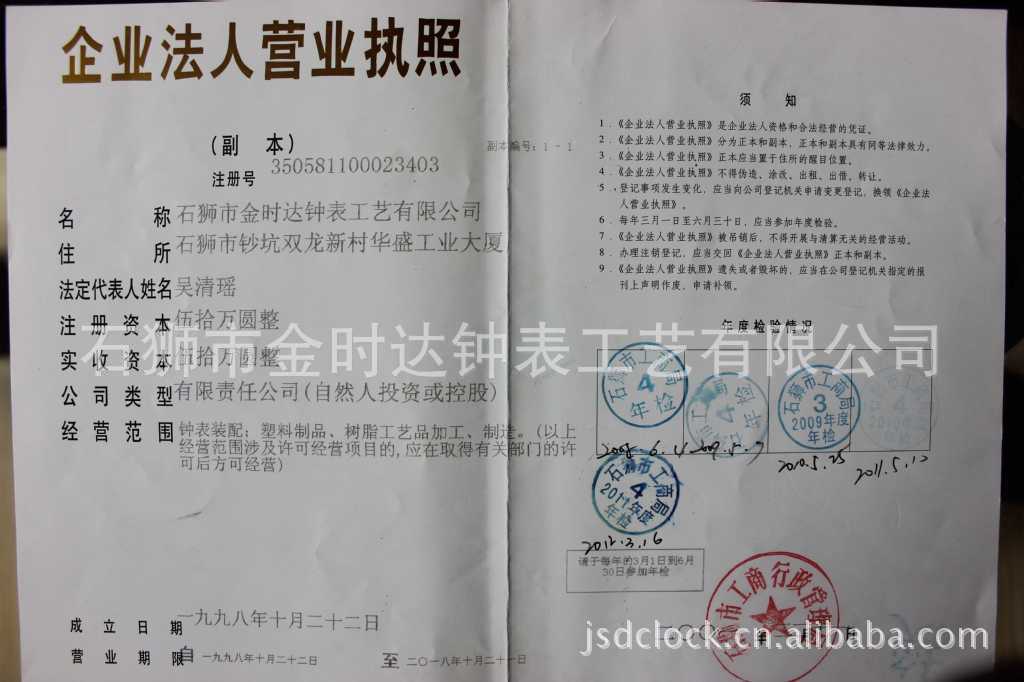 企业法人营业执照
（副 本）
副本编号：1－1
注册号 350581100023403
名 称 石狮市金时达钟表工艺有限公司
住 所 石狮市钞坑双龙新村华盛工业大厦
法定代表人姓名 吴清瑶
注册资本 伍拾万圆整
实收资本 伍拾万圆整
公司类型 有限责任公司(自然人投资或控股)
经营范围 钟表装配；塑料制品、树脂工艺品加工、制造。(以上
经营范围涉及许可经营项目的,应在取得有关部门的许
可后方可经营)
成立日期 一九九八年十月二十二日
营业期限 自一九九八年十月二十二日 至 二〇一八年十月二十一日
须 知
1．《企业法人营业执照》是企业法人资格和合法经营的凭证。
2．《企业法人营业执照》分为正本和副本，正本和副本具有同等法律效力。
3．《企业法人营业执照》正本应当置于住所的醒目位置。
4．《企业法人营业执照》不得伪造、涂改、出租、出借、转让。
5．登记事项发生变化，应当向公司登记机关申请变更登记，换领《企业法
人营业执照》。
6．每年三月一日至六月三十日，应当参加年度检验。
7．《企业法人营业执照》被吊销后，不得开展与清算无关的经营活动。
8．办理注销登记，应当交回《企业法人营业执照》正本和副本。
9．《企业法人营业执照》遗失或者毁坏的，应当在公司登记机关指定的报
刊上声明作废，申请补领。
年度检验情况
石狮市金时达钟表工艺有限公司
石狮市工商局
4
年检
4
年检
石狮市工商局
3
2009年度
年检
2008.6.4
2009.5.7
2010.5.25
2011.5.12
石狮市工商局
4
2011年度
年检
2012.3.16
请于每年的3月1日到6月
30日参加年检
石狮市工商行政管理
jsdclock.cn.alibaba.com